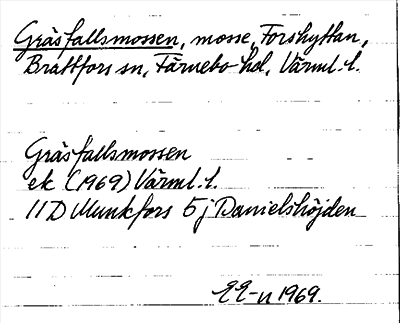 Gräsfallsmossen, mosse, Forshyttan,
Brattfors sn, Färnebo hd, Värml. l.
Gräsfallsmossen
ek (1969) Värml. l.
11D Munkfors 5j Danielshöjden
1969.